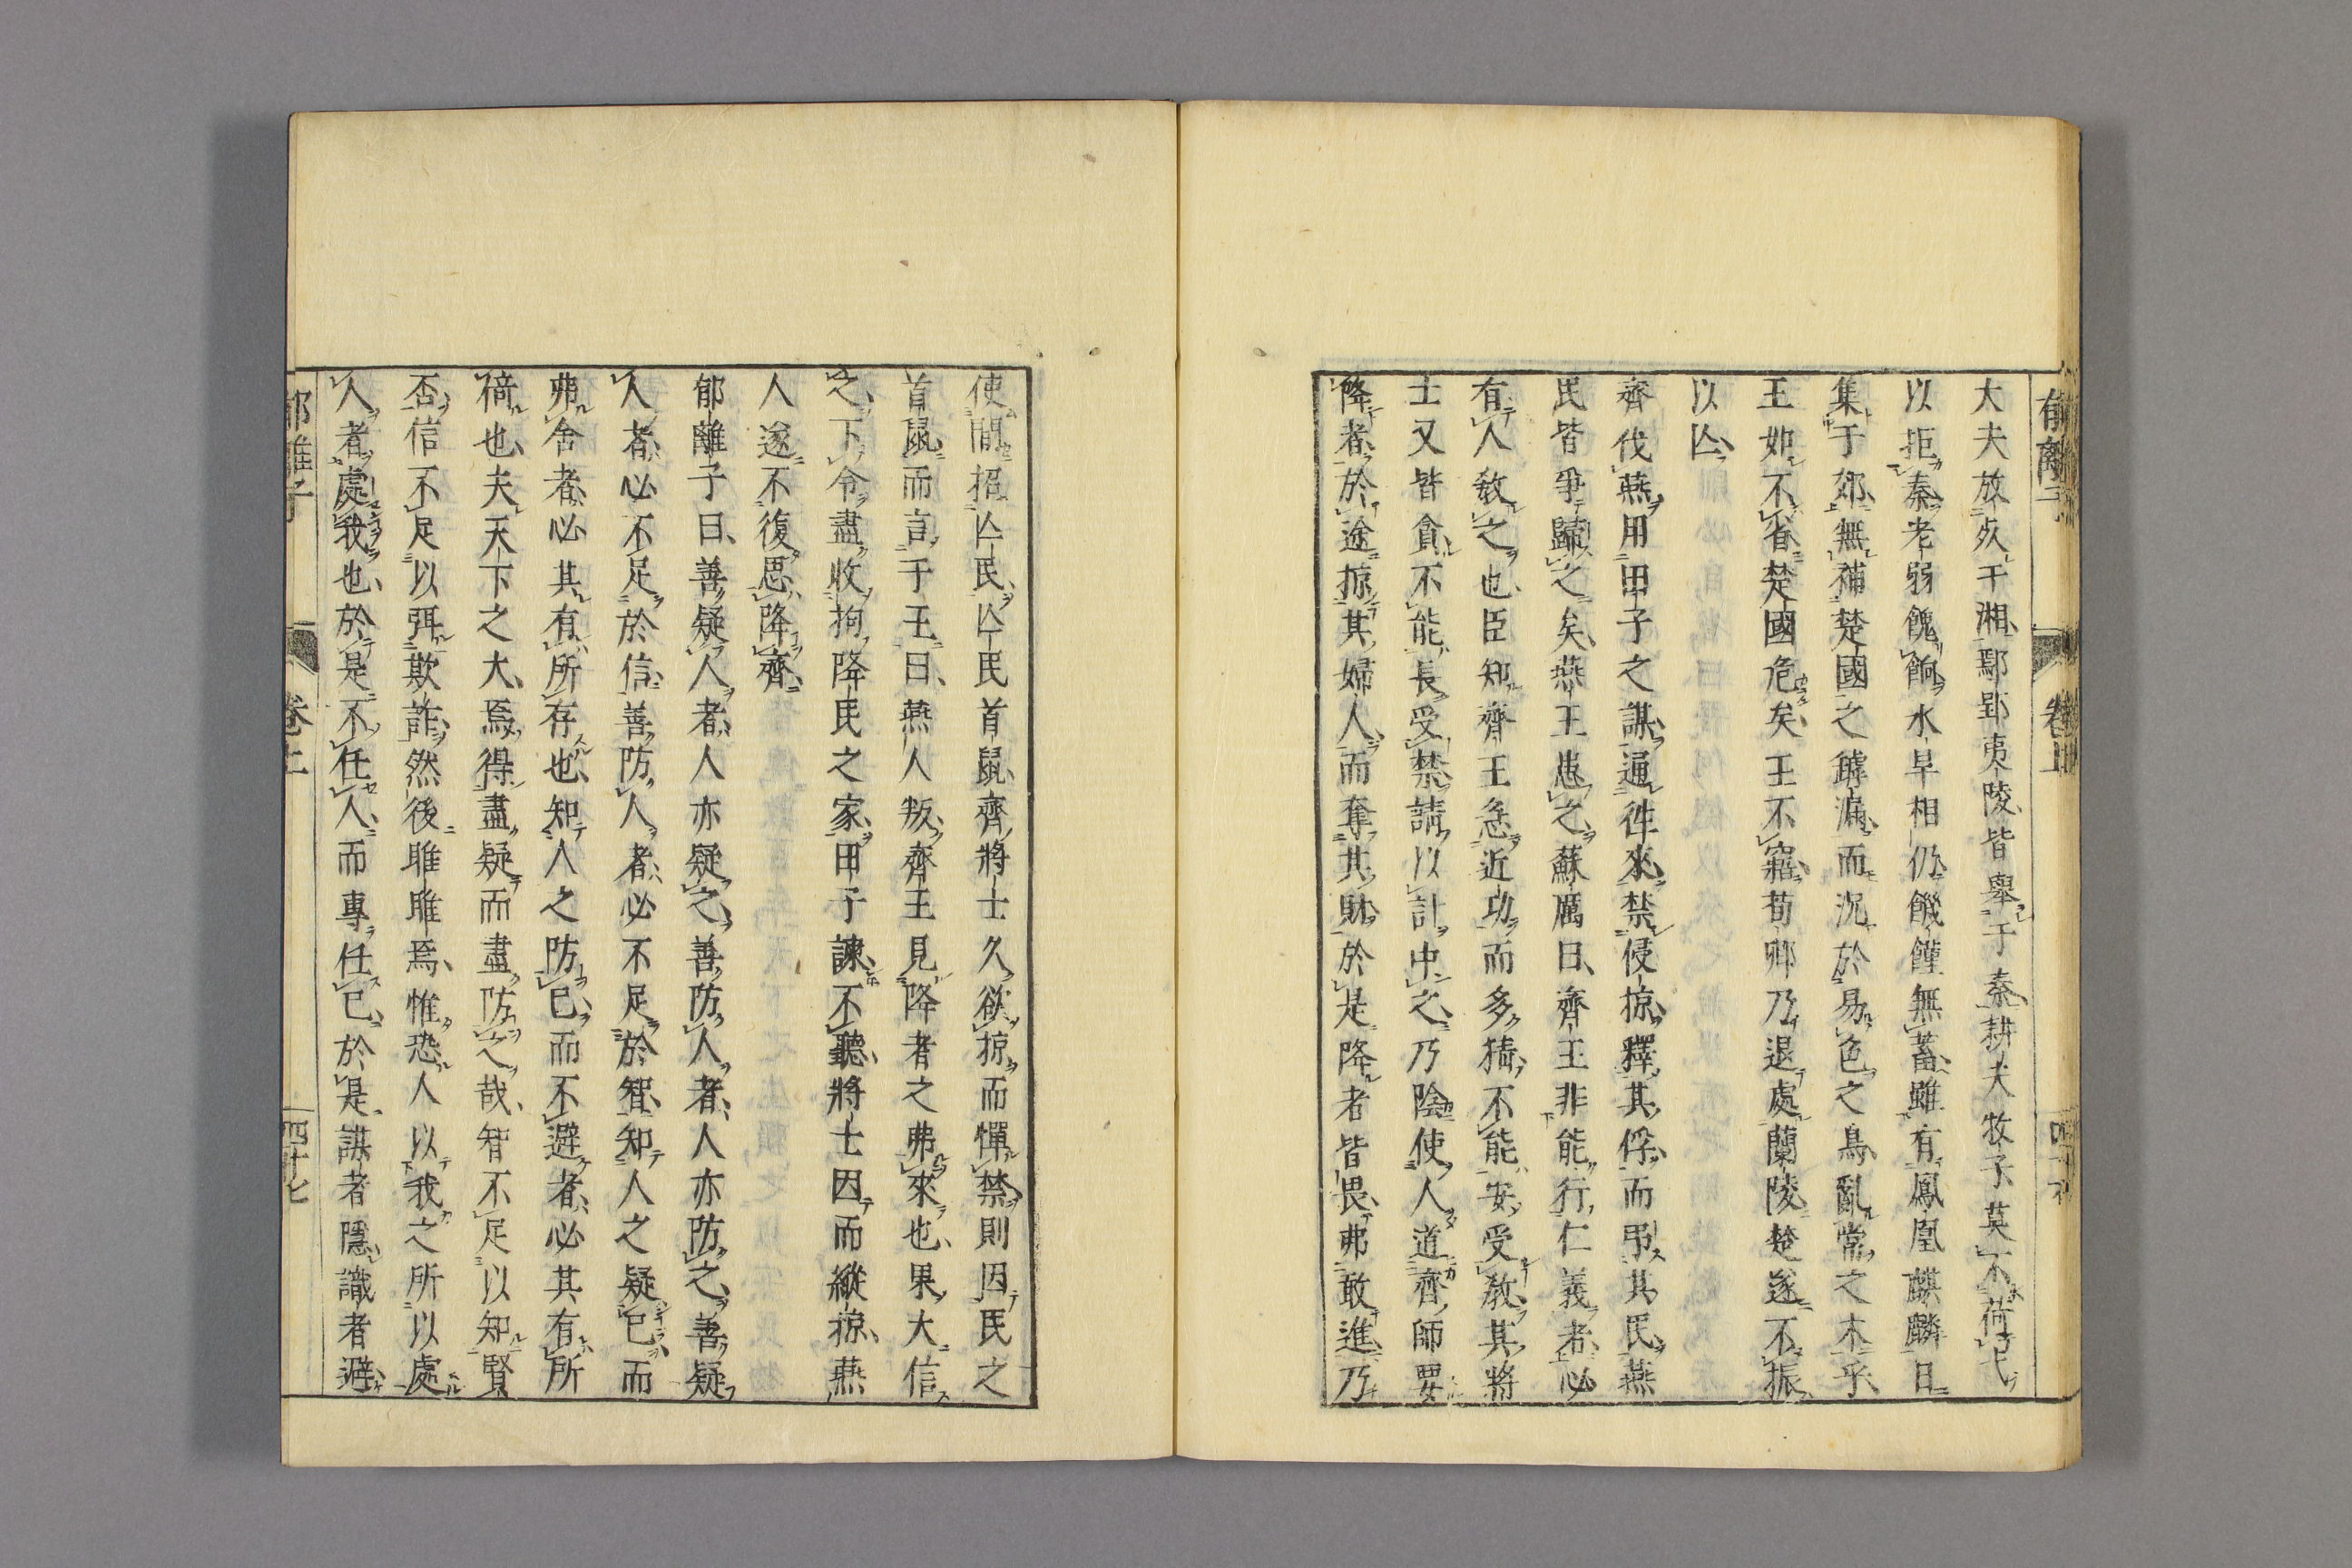 郁離子 卷上
大夫放死于湘鄢郢夷陵皆舉于秦耕夫牧子莫不荷戈
以拒秦老弱餽餉水旱相仍饑饉無蓄雖有鳳凰麒麟日
集于郊無補楚國之罅漏而況於易色之鳥亂常之木乎
王如不省楚國危矣王不寤荀卿乃退處蘭陵楚遂不振
以亾
齊伐燕用田子之謀通徃來禁侵掠釋其俘而弔其民燕
民皆爭歸之矣燕王患之蘇厲曰齊王非能行仁義者必
有人敎之也臣知齊王急近功而多猜不能安受敎其將
士又皆貪不能長受禁請以計中之乃陰使人道齊師要
降者於途掠其婦人而奪其財於是降者皆畏弗敢進乃
使間招亾民亾民首鼠齊將士久欲掠而憚禁則因民之
首鼠而言于王曰燕人叛齊王見降者之弗來也果大信
之下令盡收拘降民之家田子諫不聽將士因而縱掠燕
人遂不復思降齊
郁離子曰善疑人者人亦疑之善防人者人亦防之善疑
人者必不足於信善防人者必不足於智知人之疑已而
弗舍者必其有所存也知人之防已而不避者必其有所
倚也夫天下之大焉得盡疑而盡防之哉智不足以知賢
否信不足以弭欺詐然後睢睢焉惟恐人以我之所以處
人者處我也於是不任人而專任已於是謀者隱識者避
郁離子 卷上 四十七